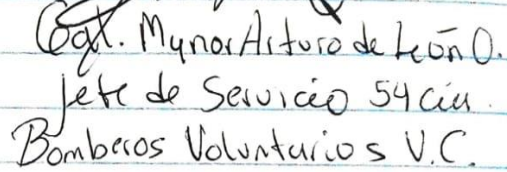 Cgt. Mynor Arturo de León O.
Jefe de Servicio 54 Cía.
Bomberos Voluntarios V.C.